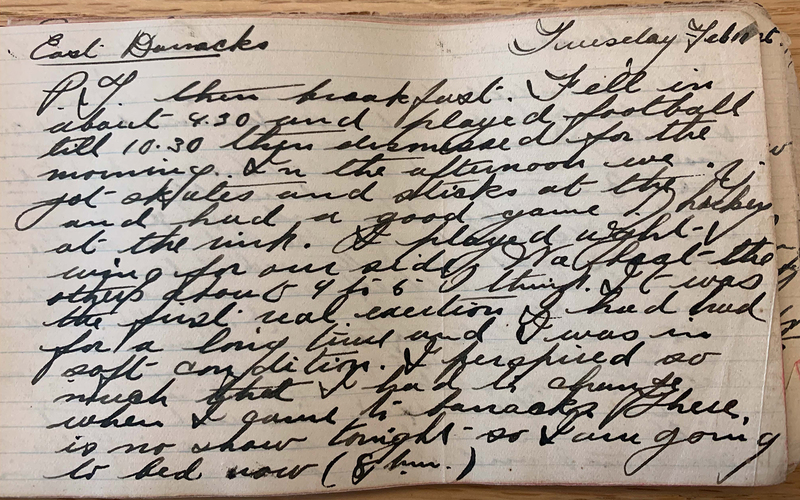 East Barracks Tuesday Feb
P.T. then breakfast. Fell in
about 9.30 and played football
till 10.30 then dismissed for the
morning. In the afternoon we
got skates and sticks at the Y.
and had a good game of hockey
at the rink. I played right-
wing for our side. We beat the
others about 9 to 5 I think. It was
the first real exertion I had had
for a long time and I was in
soft condition. I perspired so
much that I had to change
when I came to barracks. There
is no show tonight so I am going
to bed now (8 p.m.)